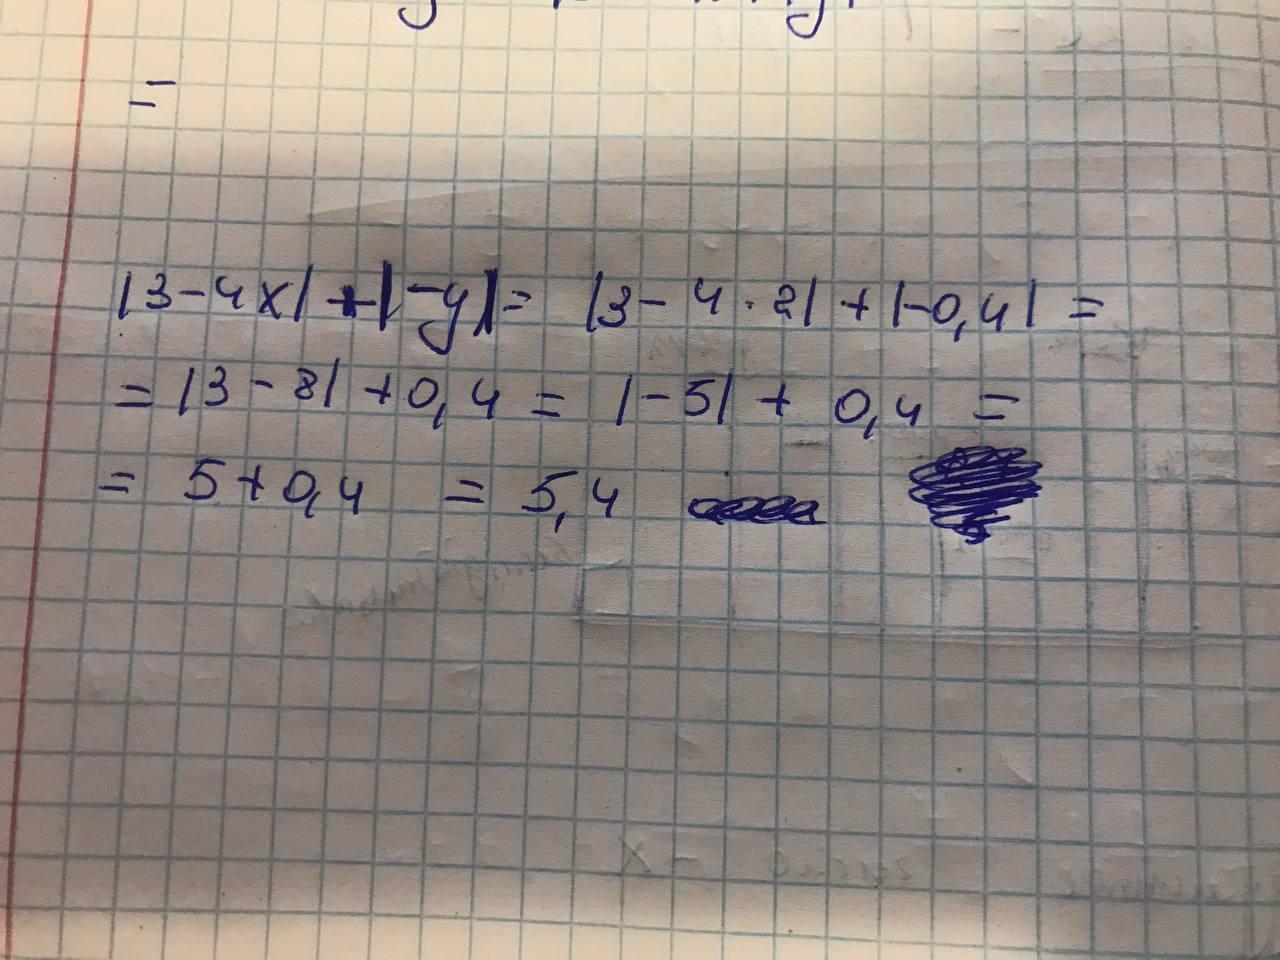 =
|3-4x|+|-y|= |3-4·2|+|-0,4|=
=|3-8|+0,4=|-5|+0,4=
=5+0,4=5,4